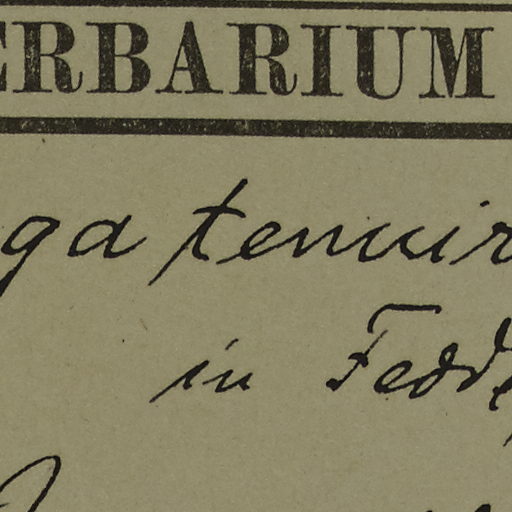 ERBARIUM
ga tenuir
in Fedde